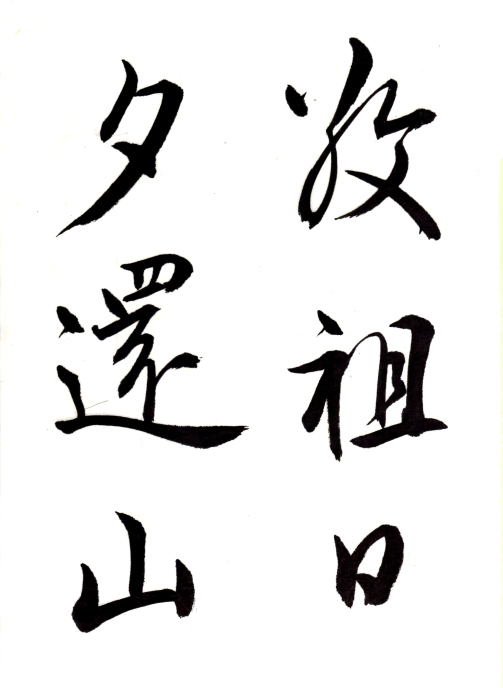 敬祖日
夕還山